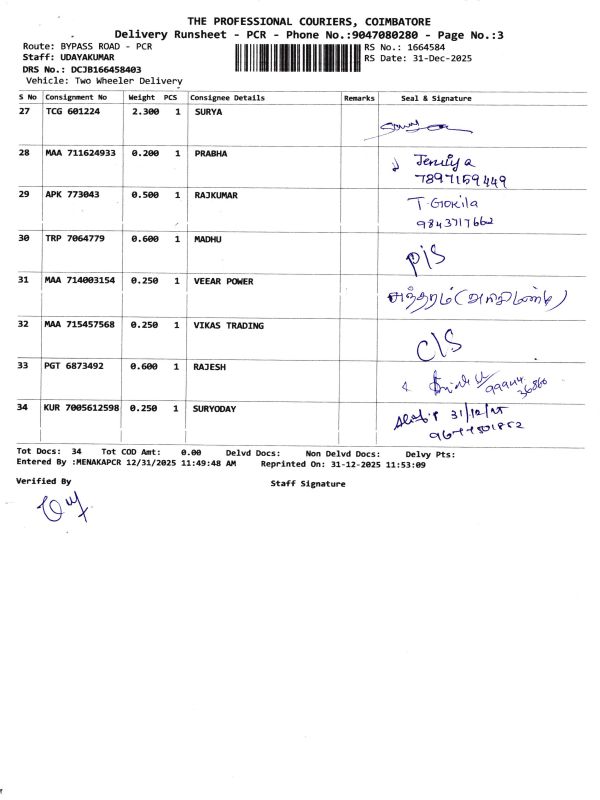 THE PROFESSIONAL COURIERS, COIMBATORE
Delivery Runsheet - PCR - Phone No.:9047080280 - Page No.:3
Route: BYPASS ROAD - PCR
RS No.: 1664584
Staff: UDAYAKUMAR
RS Date: 31-Dec-2025
DRS No.: DCJB166458403
Vehicle: Two Wheeler Delivery
S No Consignment No Weight PCS Consignee Details Remarks Seal & Signature
27 TCG 601224 2.300 1 SURYA
28 MAA 711624933 0.200 1 PRABHA
7897159449
29 APK 773043 0.500 1 RAJKUMAR T. Gokila
9843717662
30 TRP 7064779 0.600 1 MADHU P/S
31 MAA 714003154 0.250 1 VEEAR POWER
32 MAA 715457568 0.250 1 VIKAS TRADING C/S
33 PGT 6873492 0.600 1 RAJESH 99944
36860
34 KUR 7005612598 0.250 1 SURYODAY 31/12/25
Tot Docs: 34 Tot COD Amt: 0.00 Delvd Docs: Non Delvd Docs: Delvy Pts:
Entered By :MENAKAPCR 12/31/2025 11:49:48 AM Reprinted On: 31-12-2025 11:53:09
Verified By Staff Signature